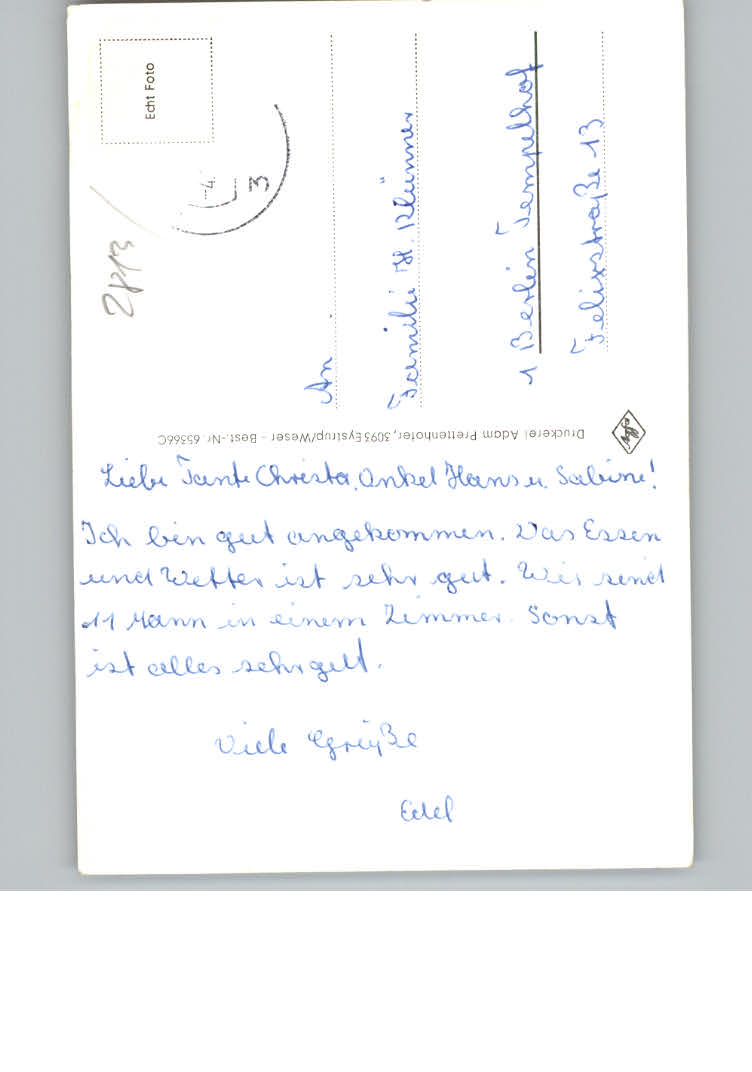 Echt Foto
-4
3
2813
An
Familie H. Klünner
1 Berlin Tempelhof
Felixstraße 13
Druckerei Adam Prettenhofer, 3093 Eystrup/Weser - Best.-Nr 65366C
Liebe Tante Christa, Onkel Hans u. Sabine!
Ich bin gut angekommen. Das Essen
und Wetter ist sehr gut. Wir sind
11 Mann in einem Zimmer. Sonst
ist alles sehr gut.
Viele Grüße